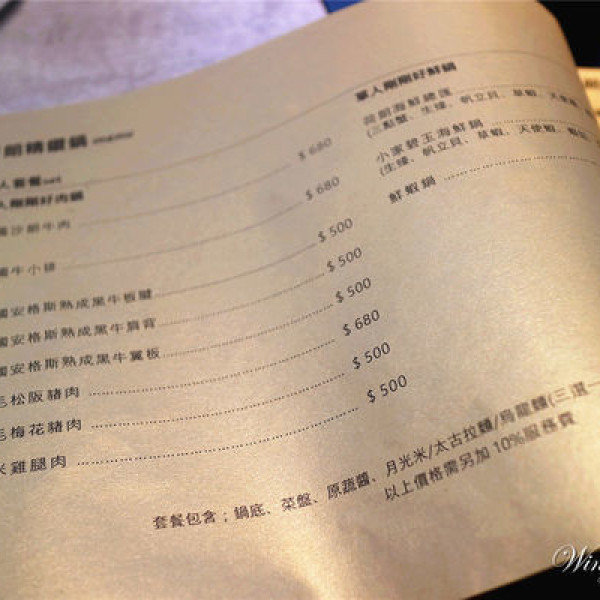 精緻鍋 menu
人套餐set
人剛剛好肉鍋
沙朗牛肉 $ 680
牛小排 $ 680
國安格斯熟成黑牛板腱 $ 500
國安格斯熟成黑牛肩背 $ 500
國安格斯熟成黑牛翼板 $ 500
松阪豬肉 $ 680
梅花豬肉 $ 500
米雞腿肉 $ 500
套餐包含；鍋底、菜盤、原蔬醬、月光米/太古拉麵/烏龍麵(三選一
以上價格需另加10%服務費
單人剛剛好鮮鍋
海鮮總匯
(三點蟹、生蠔、帆立貝、草蝦、天使
小家碧玉海鮮鍋
(生蠔、帆立貝、草蝦、天使蝦、
鮮蝦鍋
Win